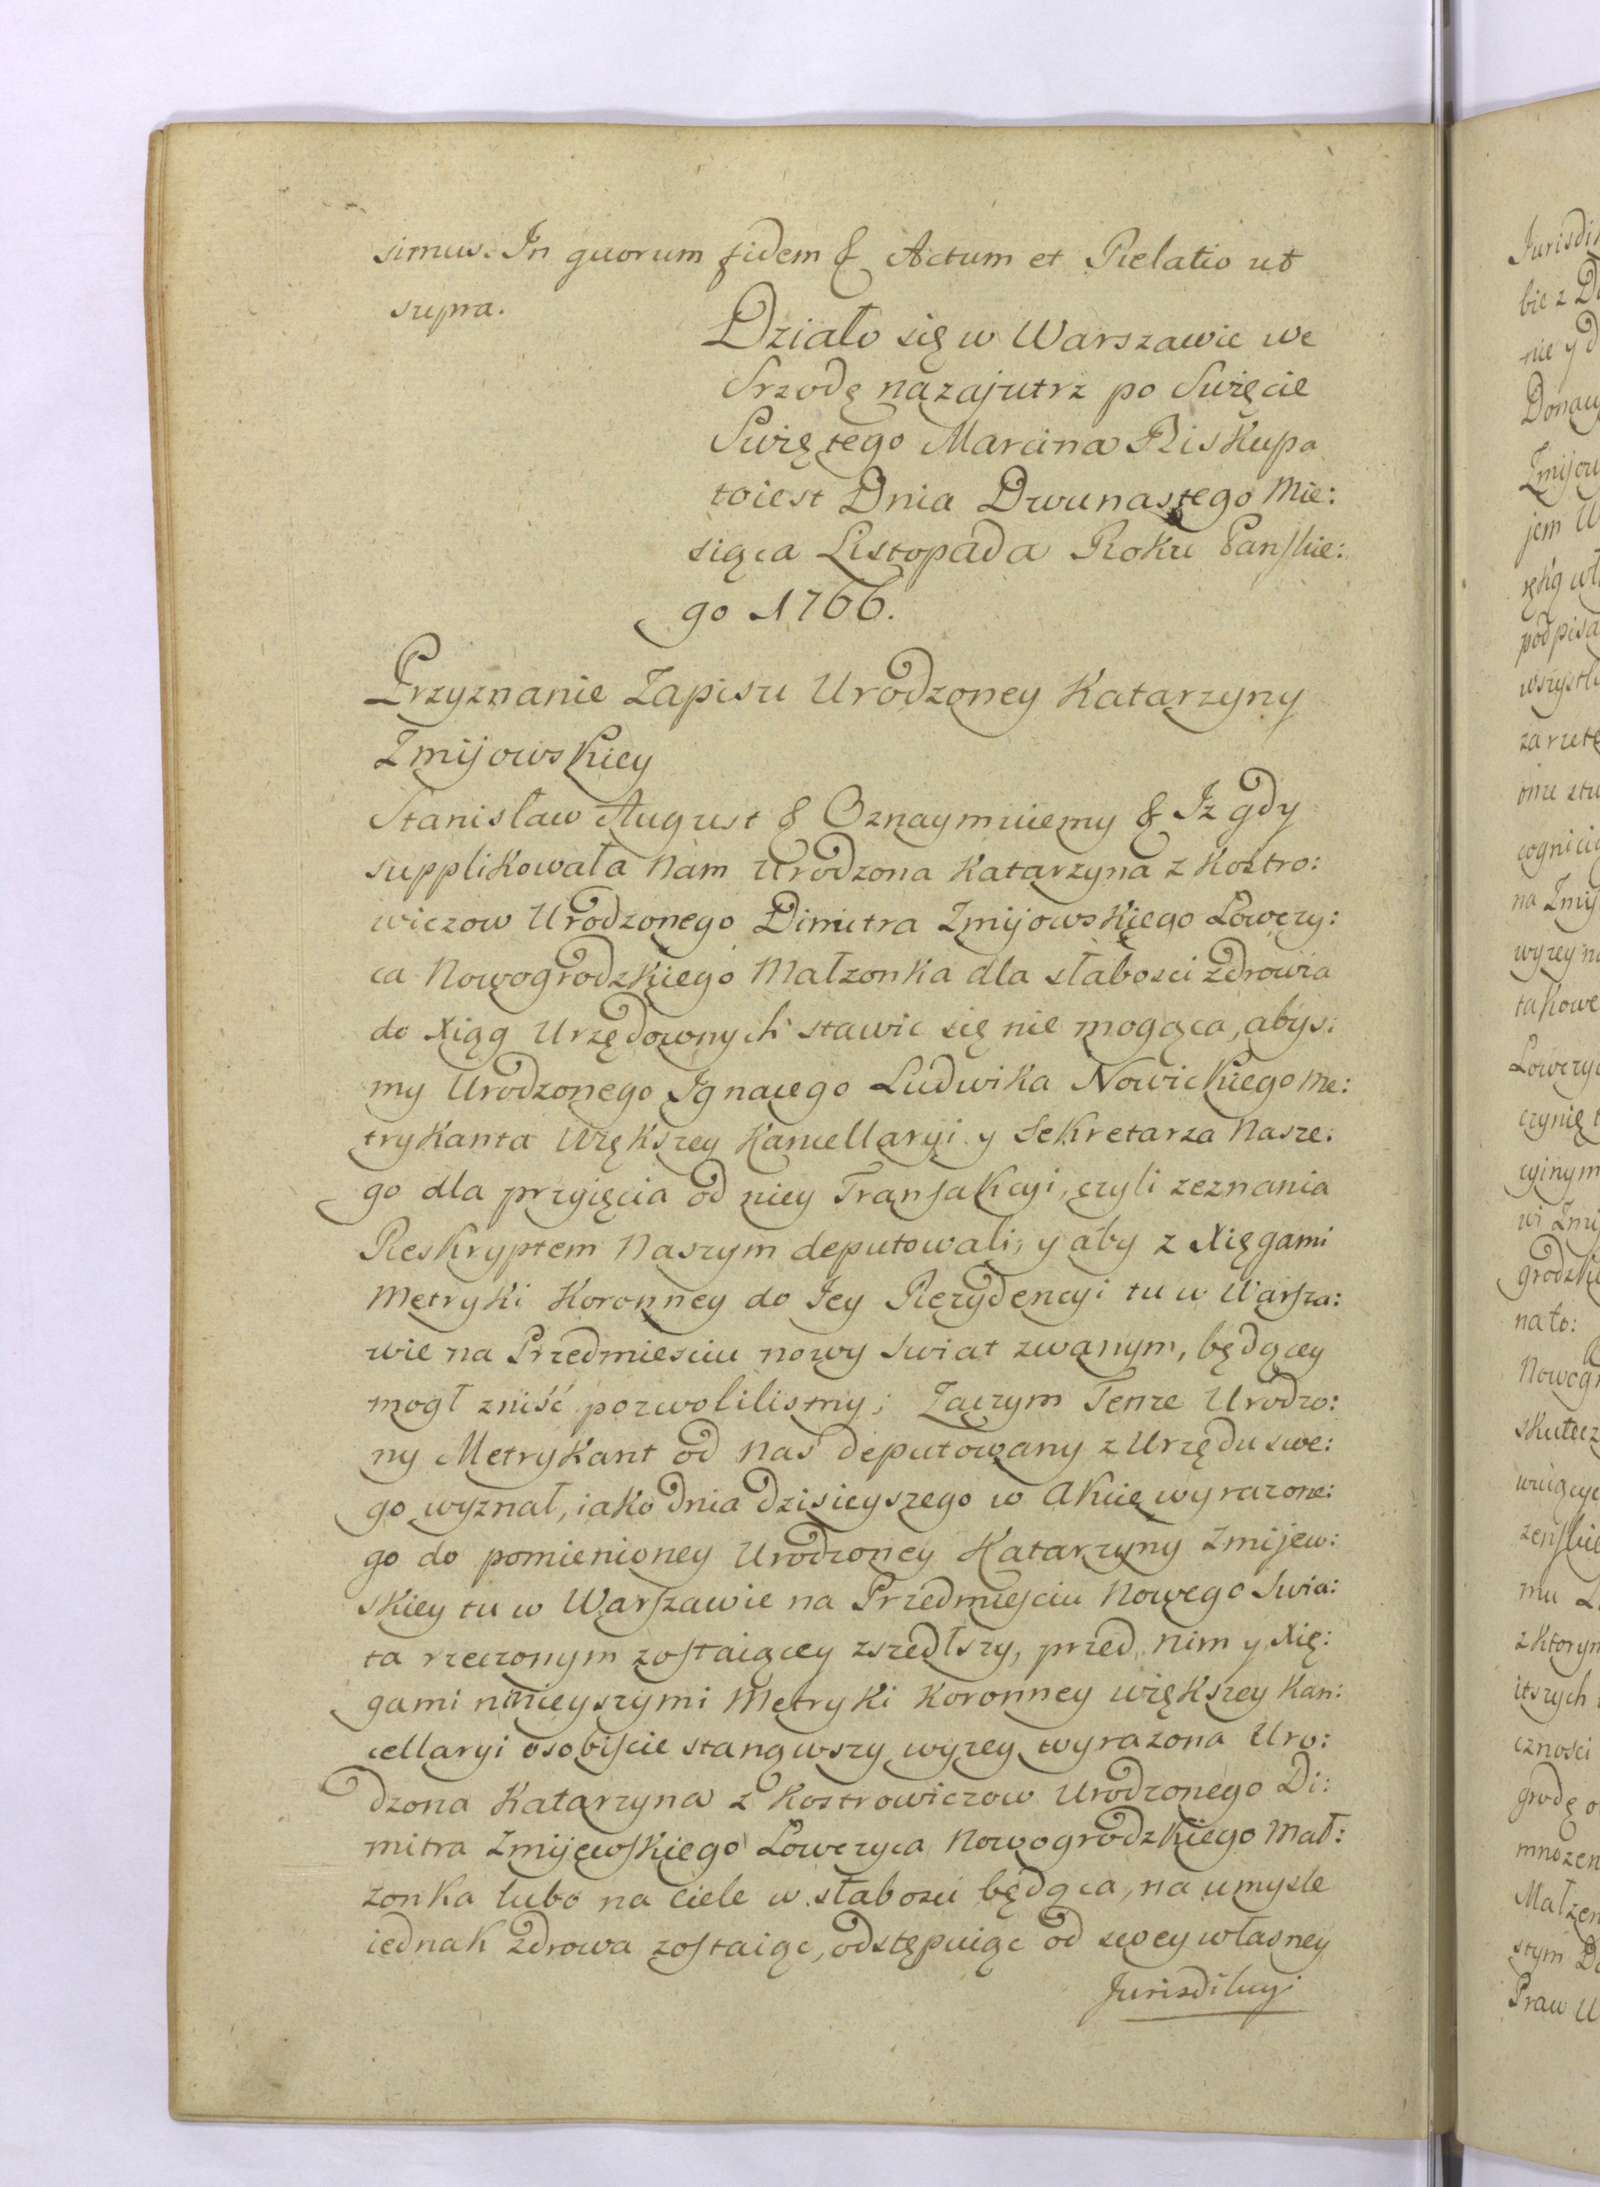 simus. In quorum fidem & Actum et Relatio ut
supra.
Działo się w Warszawie we
Srzodę nazajutrz po Swięcie
Swiętego Marcina Biskupa
toiest Dnia Dwunastego Mie:
siąca Listopada Roku Panskie:
go 1766.
Przyznanie Zapisu Urodzoney Katarzyny
Zmijowskiey
Stanisław August & Oznaymuiemy & Iż gdy
supplikowała Nam Urodzona Katarzyna z Kostro:
wiczow Urodzonego Dimitra Zmijowskiego Łowczy:
ca Nowogrodzkiego Małzonka dla słabosci zdrowia
do Xiąg Urzędownych stawic się nie mogąca, abys:
my Urodzonego Ignacego Ludwika Nowickiego Me:
trykanta Większey Kancellaryi y Sekretarza Nasze:
go dla przyięcia od niey Transakcyi, czyli zeznania
Reskryptem Naszym deputowali, y aby z Xięgami
Metryki Koronney do Jey Rezydencyi tu w Warsza:
wie na Przedmiesciu nowy Swiat zwanym, będącey
mogł zniść pozwolilismy; Zaczym Tenze Urodzo:
ny Metrykant od Nas deputowany z Urzędu swe:
go wyznał, iako dnia dzisieyszego w Akcie wyrazone:
go do pomienioney Urodzoney Katarzyny Zmijew:
skiey tu w Warszawie na Przedmiesciu Nowego Swia:
ta rzeczonym zostaiącey zszedłszy, przed nim y Xię:
gami ninieyszymi Metryki Koronney większey Kan:
cellaryi osobiscie stanąwszy wyzey wyrazona Uro:
dzona Katarzyna z Kostrowiczow Urodzonego Di:
mitra Zmijewskiego Łowczyca Nowogrodzkiego Mał:
zonka lubo na ciele w słabosci będąca, na umysle
iednak zdrowa zostaiąc, odstępuiąc od swey własney
Jurisdikcyi
Jurisdi
bie z
nie y
Zmijow
jem
podpisa
wszystk
na Zmij
takowe
czynię
grodzki
nato:
mu
z ktorym
czności
grodę
mnozen
Małzen
stym
Praw